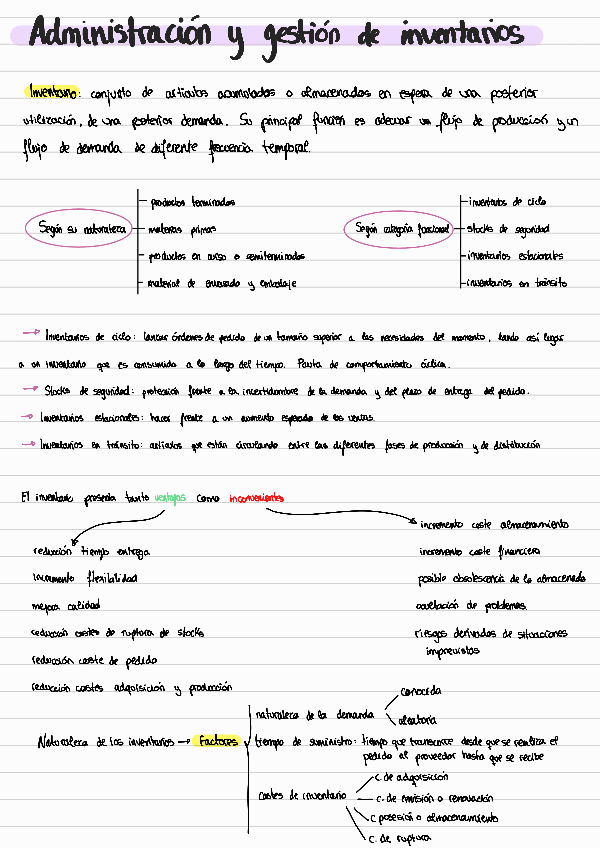 Administración y gestión de inventarios
Inventario: conjunto de artículos acumulados o almacenados en espera de una posterior
utilización, de una posterior demanda. Su principal función es adecuar un flujo de producción y un
flujo de demanda de diferente frecuencia temporal.
Según su naturaleza
productos terminados
materias primas
productos en curso o semiterminados
material de envasado y embalaje
Según categoría funcional
inventarios de ciclo
stocks de seguridad
inventarios estacionales
inventarios en tránsito
→ Inventarios de ciclo: lanzar órdenes de pedido de un tamaño superior a las necesidades del momento, dando así lugar
a un inventario que es consumido a lo largo del tiempo. Pauta de comportamiento cíclica.
→ Stocks de seguridad: protección frente a la incertidumbre de la demanda y del plazo de entrega del pedido.
→ Inventarios estacionales: hacer frente a un aumento esperado de las ventas.
→ Inventarios en tránsito: artículos que están circulando entre las diferentes fases de producción y de distribución
El inventario presenta tanto ventajas como inconvenientes
reducción tiempo entrega
incremento flexibilidad
mejora calidad
reducción costes de ruptura de stocks
reducción coste de pedido
reducción costes adquisición y producción
incremento coste almacenamiento
incremento coste financiero
posible obsolescencia de lo almacenado
ocultación de problemas
riesgos derivados de situaciones
imprevistas
Naturaleza de los inventarios → Factores
naturaleza de la demanda
conocida
aleatoria
tiempo de suministro: tiempo que transcurre desde que se realiza el
pedido al proveedor hasta que se recibe
costes de inventario
c. de adquisición
c. de emisión o renovación
c. posesión o almacenamiento
c. de ruptura